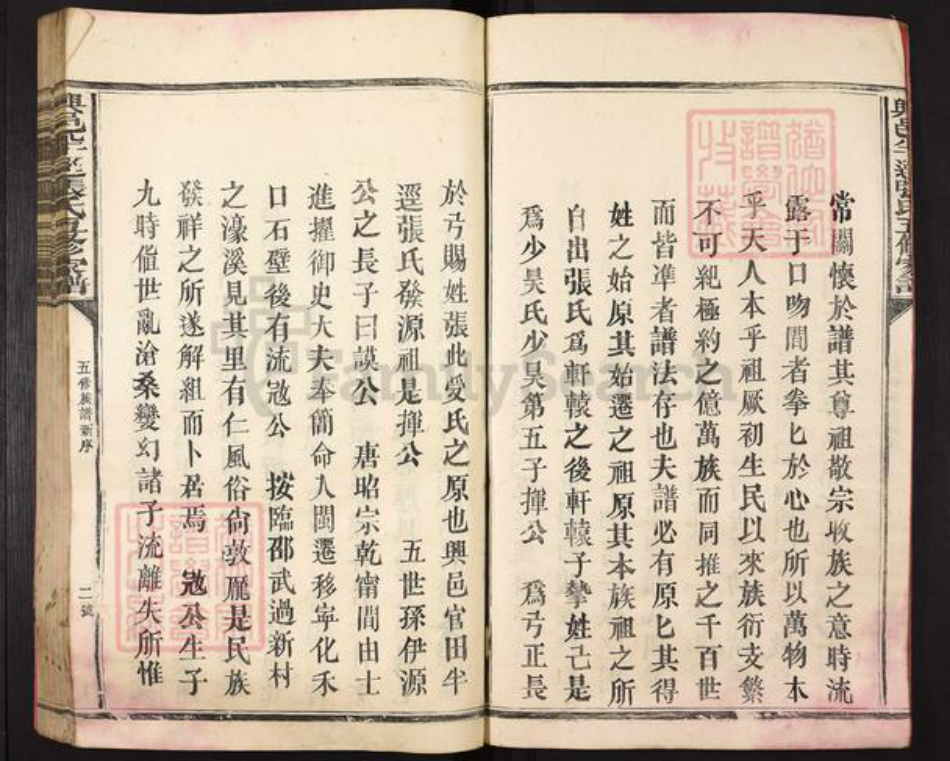 常關懷於譜其尊祖敬宗收族之意時流
露于口吻間者拳匕於心也所以萬物本
乎天人本乎祖厥初生民以來族衍支繁
不可紀極約之億萬族而同推之千百世
而皆準者譜法存也夫譜必有原匕其得
姓之始原其始遷之祖原其本族祖之所
自出張氏爲軒轅之後軒轅子摯姓己是
爲少昊氏少昊第五子揮公 爲弓正長
於弓賜姓張此受氏之原也興邑官田半
逕張氏發源祖是揮公 五世孫伊源
公之長子曰謨公 唐昭宗乾甯間由士
進擢御史大夫奉簡命入閩遷移寧化禾
口石壁後有流逖公 按臨邵武過新村
之濠溪見其里有仁風俗尙敦龎是民族
發祥之所遂解組而卜居焉 逖公生子
九時値世亂滄桑變幻諸子流離失所惟
五修族譜新序
二號
FamilySearch